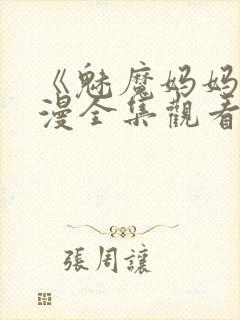 《魅魔妈妈
漫全集觀看
張周讓